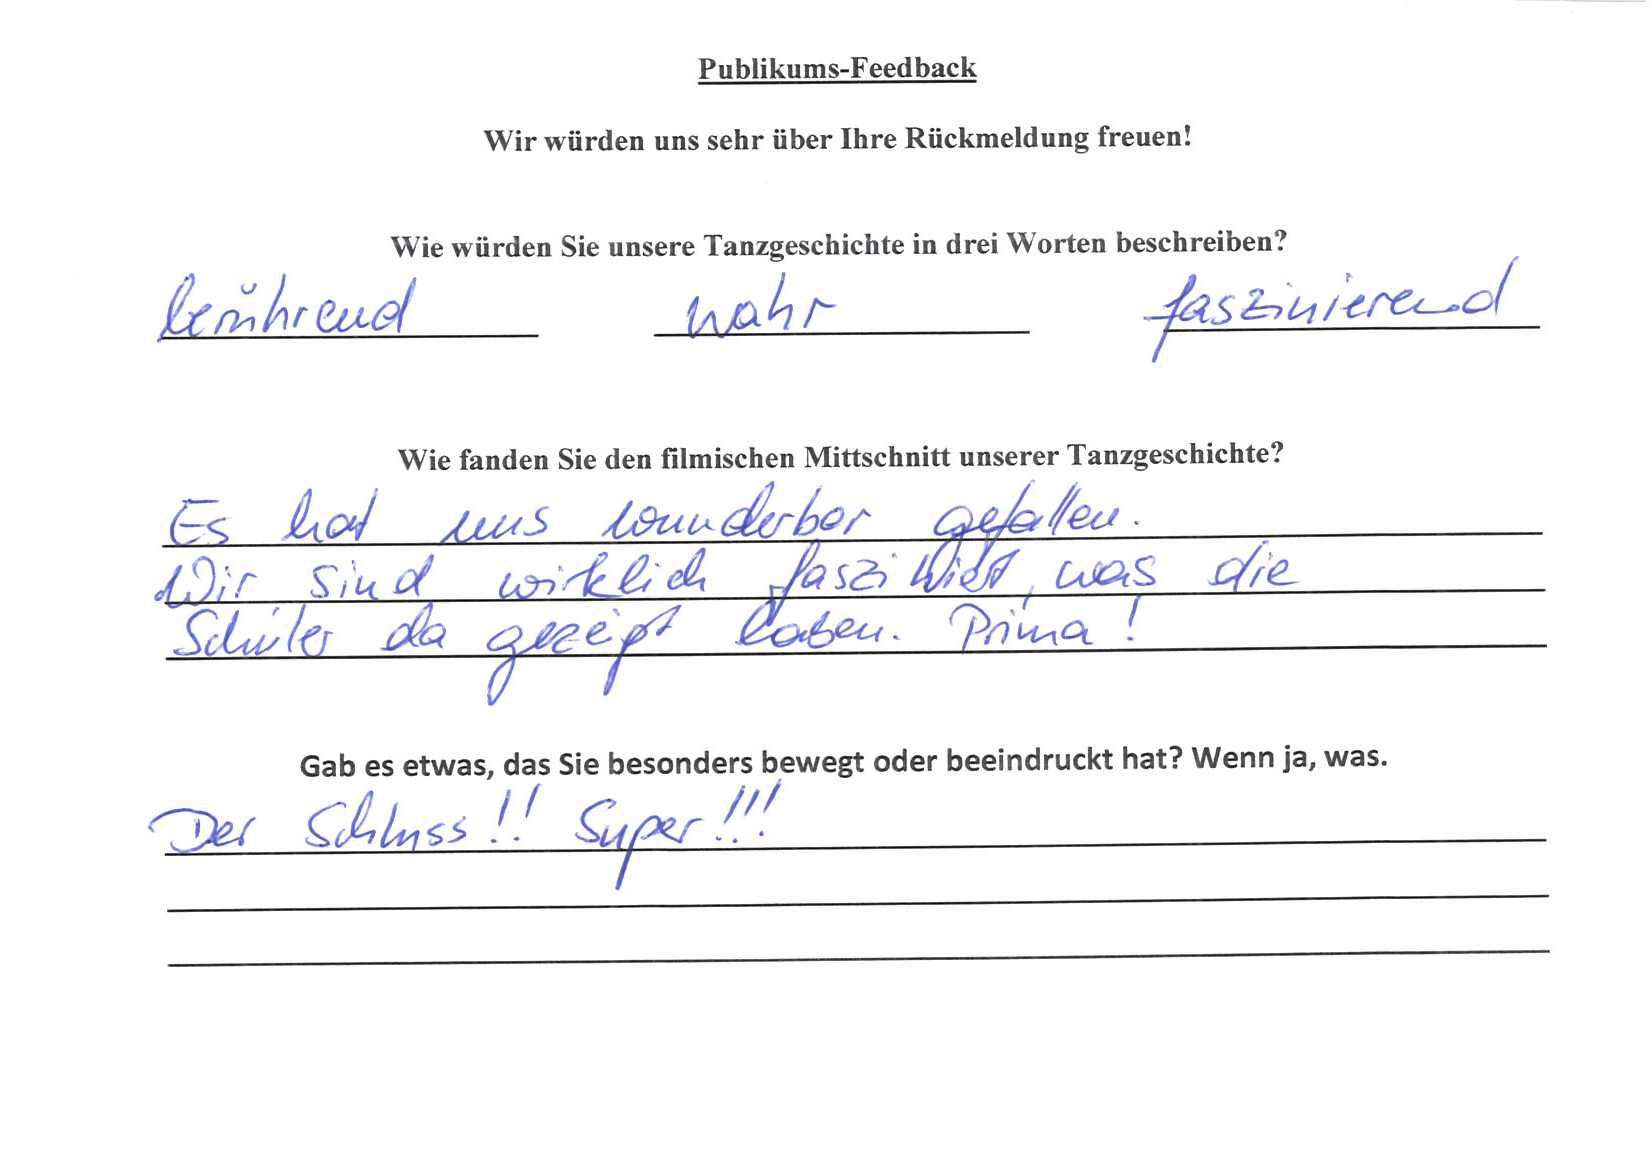 Publikums-Feedback
Wir würden uns sehr über Ihre Rückmeldung freuen!
Wie würden Sie unsere Tanzgeschichte in drei Worten beschreiben?
berührend wahr faszinierend
Wie fanden Sie den filmischen Mittschnitt unserer Tanzgeschichte?
Es hat uns wunderbar gefallen.
Wir sind wirklich fasziniert, was die
Schüler da gezeigt haben. Prima!
Gab es etwas, das Sie besonders bewegt oder beeindruckt hat? Wenn ja, was.
Der Schluss!! Super!!!